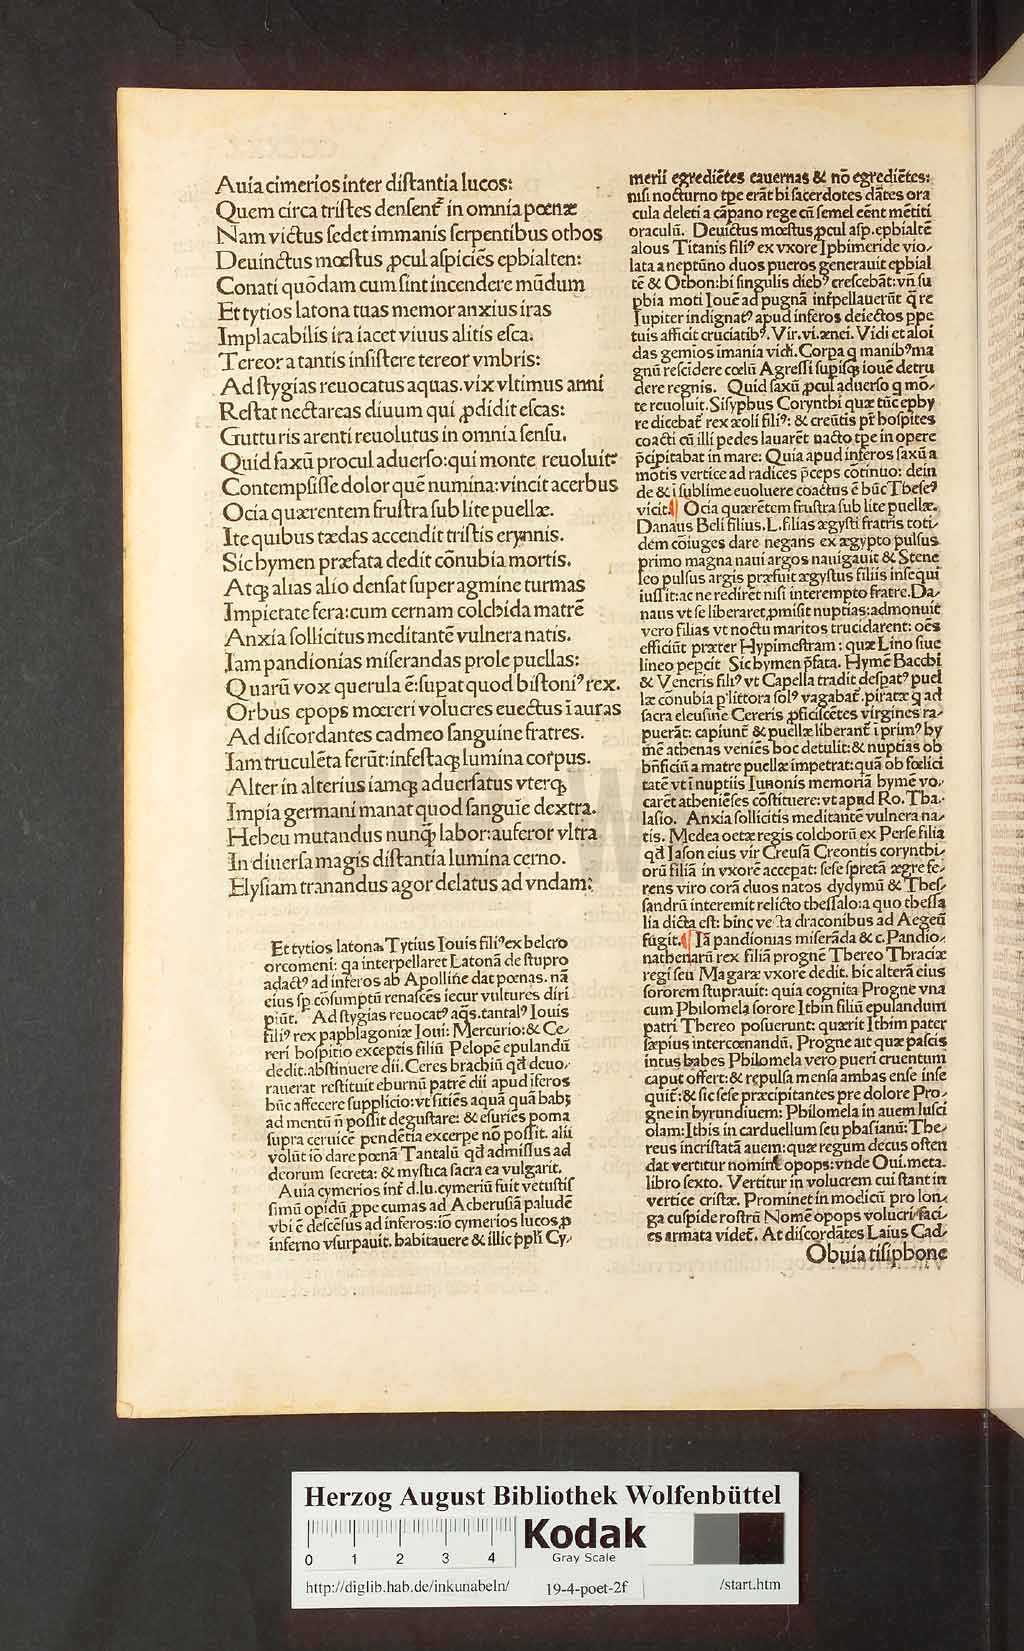 Auia cimerios inter distantia lucos:
Quem circa tristes densent᷑ in omnia pœnæ
Nam victus sedet immanis serpentibus othos
Deuinctus mœstus ꝓcul aspiciẽs ephialten:
Conati quõdam cum sint incendere mũdum
Et tytios latona tuas memor anxius iras
Implacabilis ira iacet viuus alitis esca.
Tereor a tantis insistere tereor vmbris:
Ad stygias reuocatus aquas. vix vltimus anni
Restat nectareas diuum qui ꝓdidit escas:
Gutturis arenti reuolutus in omnia sensu.
Quid saxũ procul aduerso: qui monte reuoluit:
Contempsisse dolor quẽ numina: vincit acerbus
Ocia quærentem frustra sub lite puellæ.
Ite quibus tædas accendit tristis erynnis.
Sic hymen præfata dedit cõnubia mortis.
Atqꝫ alias alio densat super agmine turmas
Impietate fera: cum cernam colchida matrẽ
Anxia sollicitus meditantẽ vulnera natis.
Iam pandionias miserandas prole puellas:
Quarũ vox querula ẽ: supat quod bistoniꝰ rex.
Orbus epops mœreri volucres euectus ĩ auras
Ad discordantes cadmeo sanguine fratres.
Iam truculẽta ferũt: infestaqꝫ lumina corpus.
Alter in alterius iamqꝫ aduersatus vterqꝫ
Impia germani manat quod sanguĩe dextra.
Hebeu mutandus nunq̃ labor: auferor vltra
In diuersa magis distantia lumina cerno.
Elysiam tranandus agor delatus ad vndam:
Et tytios latona. Tytius Iouis filiꝰ ex helcro
orcomeni: qa interpellaret Latonã de stupro
adactꝰ ad inferos ab Apolline dat pœnas. nã
eius sp cõsumptũ renascẽs iecur vultures diri
piũt. Ad stygias reuocatꝰ aq̃s. tantalꝰ Iouis
filiꝰ rex paphlagoniæ Ioui: Mercurio: & Ce-
reri hospitio exceptis filiũ Pelopẽ epulandũ
dedit. abstinuere dii. Ceres brachiũ qđ deuo-
rauerat restituit eburnũ patrẽ dii apud ĩferos
hũc affecere supplicio: vt sitiẽs aquã quã habꝫ
ad mentũ ñ possit degustare: & esuriẽs poma
supra ceruicẽ pendẽtia excerpe nõ possit. alii
volũt iõ dare pœnã Tantalũ qđ admissus ad
deorum secreta: & mystica sacra ea vulgarit.
Auia cymerios int᷑ d. lu. cymeriũ fuit vetustis
simũ opidũ ꝓpe cumas ad Acherusiã paludẽ
vbi ẽ descẽsus ad inferos: iõ cymerios lucos ꝓ
inferno vsurpauit. habitauere & illic p̃pli Cy-
merii egrediẽtes cauernas & nõ egrediẽtes:
nisi nocturno tpe erãt hi sacerdotes dãtes ora
cula deleti a cãpano rege cũ semel eẽnt mẽtiti
oraculũ. Deuictus mœstus ꝓcul asp. ephialtẽ
alous Titanis filiꝰ ex vxore Iphimeride vio-
lata a neptũno duos pueros generauit ephial
tẽ & Othon: hi singulis diebꝰ crescebãt: vñ su
phia moti Iouẽ ad pugnã int᷑pellauerũt q̃ re
Iupiter indignatꝰ apud inferos deiectos ppe
tuis afficit cruciatibꝰ. Vir. vi. ænei. Vidi et aloi
das gemios imania vidi. Corpa q manibꝰ ma
gnũ rescidere cœlũ Agressi supisqꝫ iouẽ detru
dere regnis. Quid saxũ ꝓcul aduerso q mõ-
te reuoluit. Sisyphus Corynthi quæ tũc ephy
re dicebat᷑ rex æoli filiꝰ: & creũtis pr̃ hospites
coacti cũ illi pedes lauarẽt nacto tpe in opere
p̃cipitabat in mare: Quia apud inferos saxũ a
motis vertice ad radices p̃ceps cõtinuo: dein
de & i sublime euoluere coactus ẽ hũc Theseꝰ
vicit. ¶ Ocia quærẽtem frustra sub lite puellæ.
Danaus Beli filius. L. filias ægysti fratris toti-
dem cõiuges dare negans ex ægypto pulsus
primo magna naui argos nauigauit & Stene
leo pulsus argis præfuit ægystus filiis insequi
iussit: ac ne rediret nisi interempto fratre. Da-
naus vt se liberaret ꝓmisit nuptias: admonuit
vero filias vt noctu maritos trucidarent: oẽs
efficiũt præter Hypimestram: quæ Lino siue
lineo pepcit Sic hymen p̃fata. Hymẽ Bacchi
& Veneris filiꝰ vt Capella tradit despatꝰ puel
læ cõnubia p littora solꝰ vagabat᷑. piratæ q ad
sacra eleusine Cereris ꝓficiscẽtes virgines ra-
puerãt: capiunt᷑ & puellæ liberant᷑ ĩ primꝰ hy
mẽ athenas veniẽs hoc detulit: & nuptias ob
bñficiũ a matre puellæ impetrat: quã ob fœlici
tatẽ vt i nuptiis Iunonis memoriã hymẽ vo-
carẽt atheniẽses cõstituere: vt apud Ro. Tha-
lasio. Anxia sollicitis meditantẽ vulnera na-
tis. Medea oetæ regis colchorũ ex Perse filia
qđ Iason eius vir Creusã Creontis corynthi-
orũ filiã in vxorẽ accepat: sese spretã ægre fe-
rens viro corã duos natos dydymũ & Thes-
sandrũ interemit relicto thessalo: a quo thessa
lia dicta est: hinc vecta draconibus ad Aegeũ
fugit. ¶ Iã pandionias miserãda & c. Pandio-
nathenarũ rex filiã prognẽ Thereo Thraciæ
regi seu Magaræ vxorẽ dedit. hic alterã eius
sororem stuprauit: quia cognita Progne vna
cum Philomela sorore Ithin filiũ epulandum
patri Thereo posuerunt: quærit Ithim pater
sæpius intercœnandũ. Progne ait quæ pascis
intus habes Philomela vero pueri cruentum
caput offert: & repulsa mensa ambas ense inse
quit᷑: & sic sese præcipitantes pre dolore Pro-
gne in hyrundiuem: Philomela in auem lusci
olam: Ithis in carduellum seu phasianũ: The-
reus incristatã auem: quæ regum decus osten
dat vertitur nomine opops: vnde Oui. meta.
libro sexto. Vertitur in volucrem cui stant in
vertice cristæ. Prominet in modicũ pro lon-
ga cuspide rostrũ Nomẽ opops volucri faci-
es armata videt᷑. At discordãtes Laius Cad-
Obuia tisiphone
Herzog August Bibliothek Wolfenbüttel
0 1 2 3 4
Kodak
Gray Scale
http://diglib.hab.de/inkunabeln/ 19-4-poet-2f /start.htm